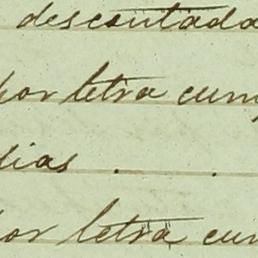 descontada
por letra cum
dias .   .
por letra cum